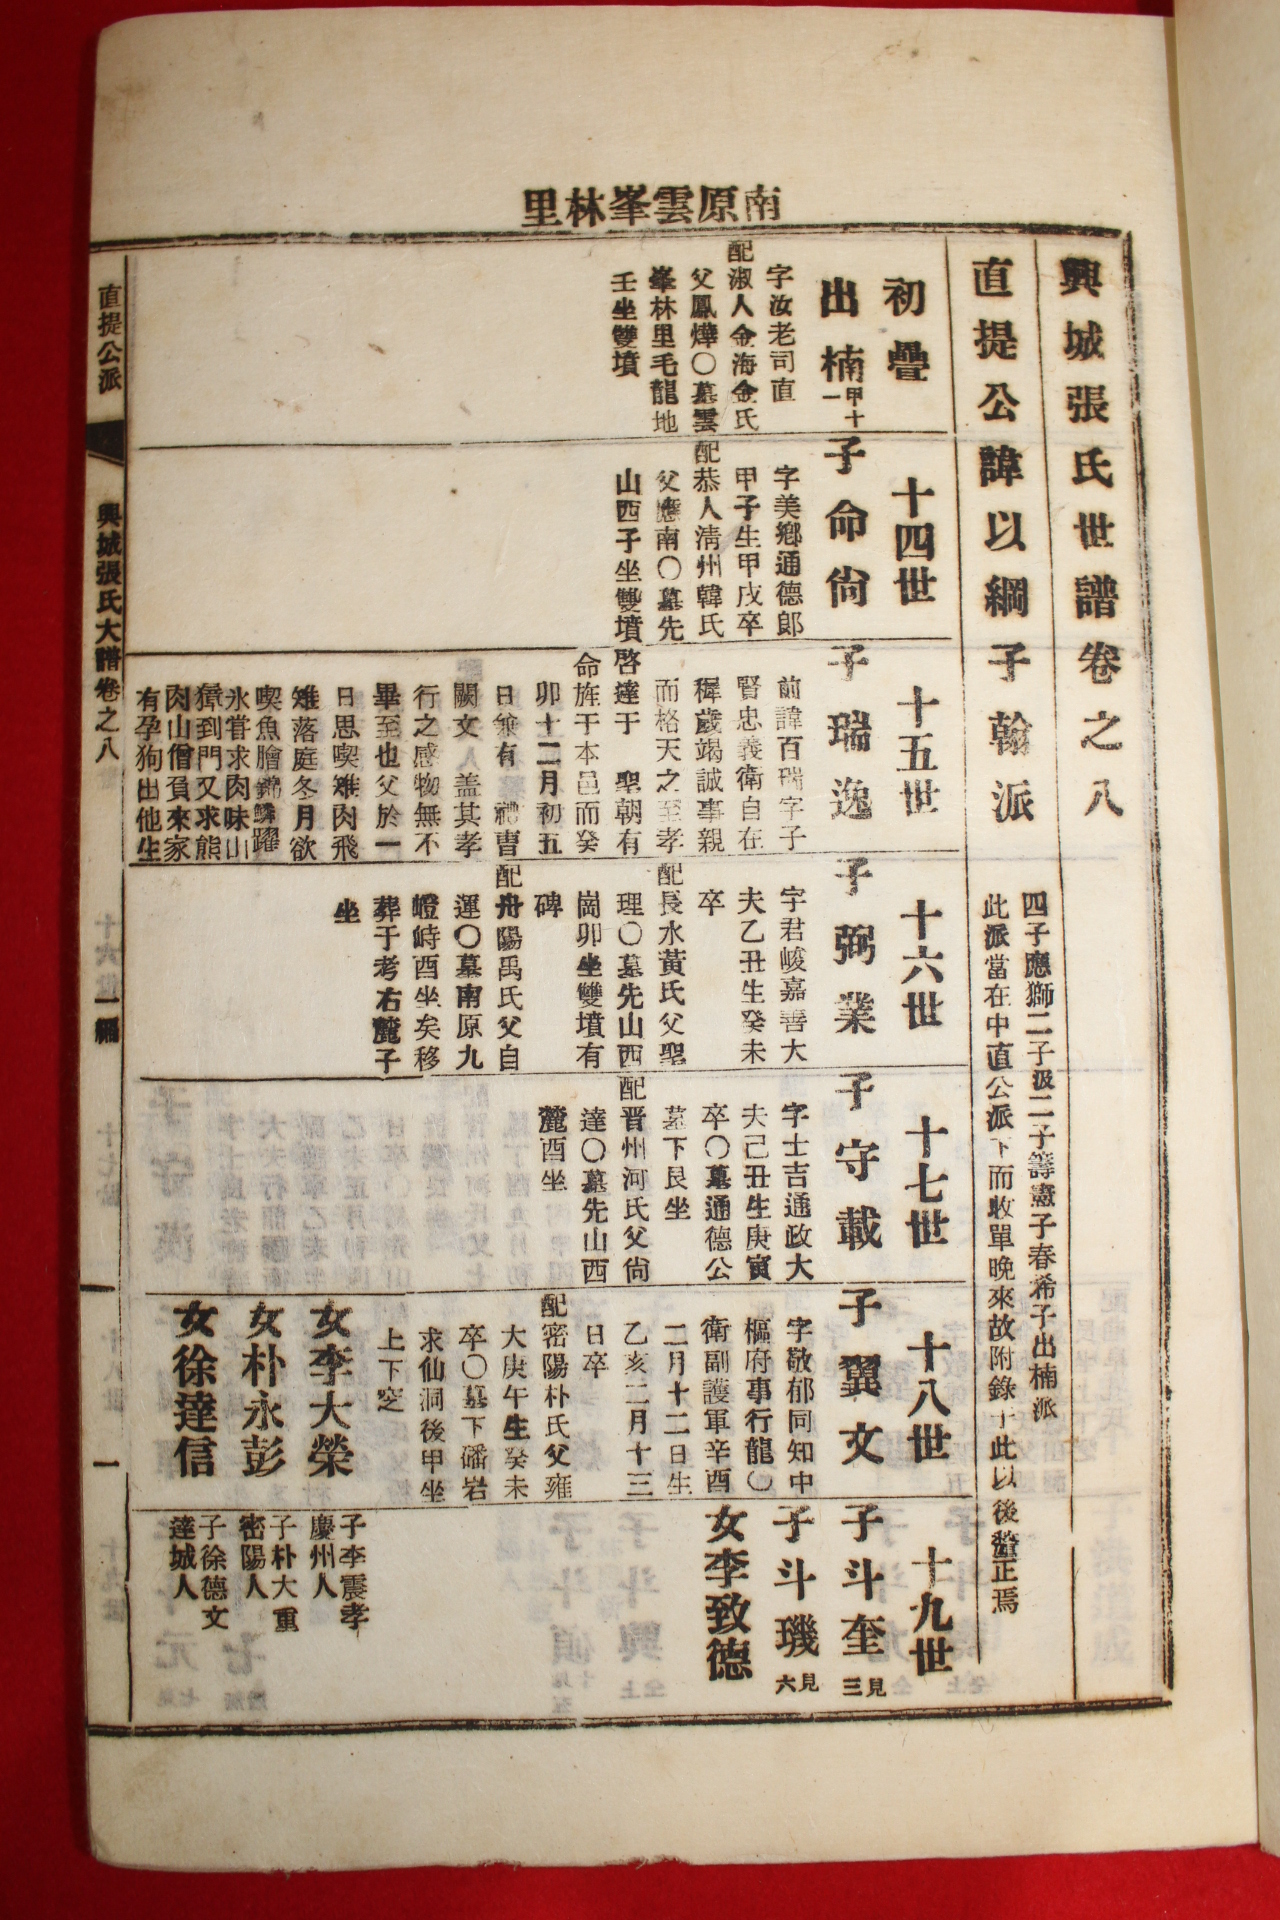 南原雲峯林里
興城張氏世譜卷之八
直提公諱以綱子翰派
四子應獅二子汲二子籌憲子春希子出楠派
此派當在中直公派下而收單晚來故附錄于此以後釐正焉
初疊
出楠甲十一
字汝老司直
配淑人金海金氏
父鳳燁〇墓雲
峯林里毛龍地
壬坐雙墳
十四世
子命尙
字美鄕通德郞
甲子生甲戌卒
配恭人淸州韓氏
父應南〇墓先
山西子坐雙墳
十五世
子瑞逸
前諱百瑞字子
賢忠義衛自在
穉歲竭誠事親
而格天之至孝
啓達于 聖朝有
命旌于本邑而癸
卯十二月初五
日兼有 禮曹
關文 盖其孝
行之感物無不
畢至也父於一
日思喫雉肉飛
雉落庭冬月欲
喫魚膾錦鱗躍
氷嘗求肉味山
獐到門又求熊
肉山僧負來家
有孕狗出他生
十六世
子弼業
字君峻嘉善大
夫乙丑生癸未
卒
配長水黃氏父聖
理〇墓先山西
崗卯坐雙墳有
碑
配丹陽禹氏父自
運〇墓南原九
嶝峙酉坐矣移
葬于考右麓子
坐
十七世
子守載
字士吉通政大
夫己丑生庚寅
卒〇墓通德公
墓下艮坐
配晋州河氏父尙
達〇墓先山西
麓酉坐
十八世
子翼文
字敬郁同知中
樞府事行龍〇
衛副護軍辛酉
二月十二日生
乙亥二月十三
日卒
配密陽朴氏父雍
大庚午生癸未
卒〇墓下磻岩
求仙洞後甲坐
上下窆
女李大榮
女朴永彭
女徐達信
十九世
子斗奎見三
子斗璣見六
女李致德
子李震孝
慶州人
子朴大重
密陽人
子徐德文
達城人
直提公派
興城張氏大譜卷之八
一編
一